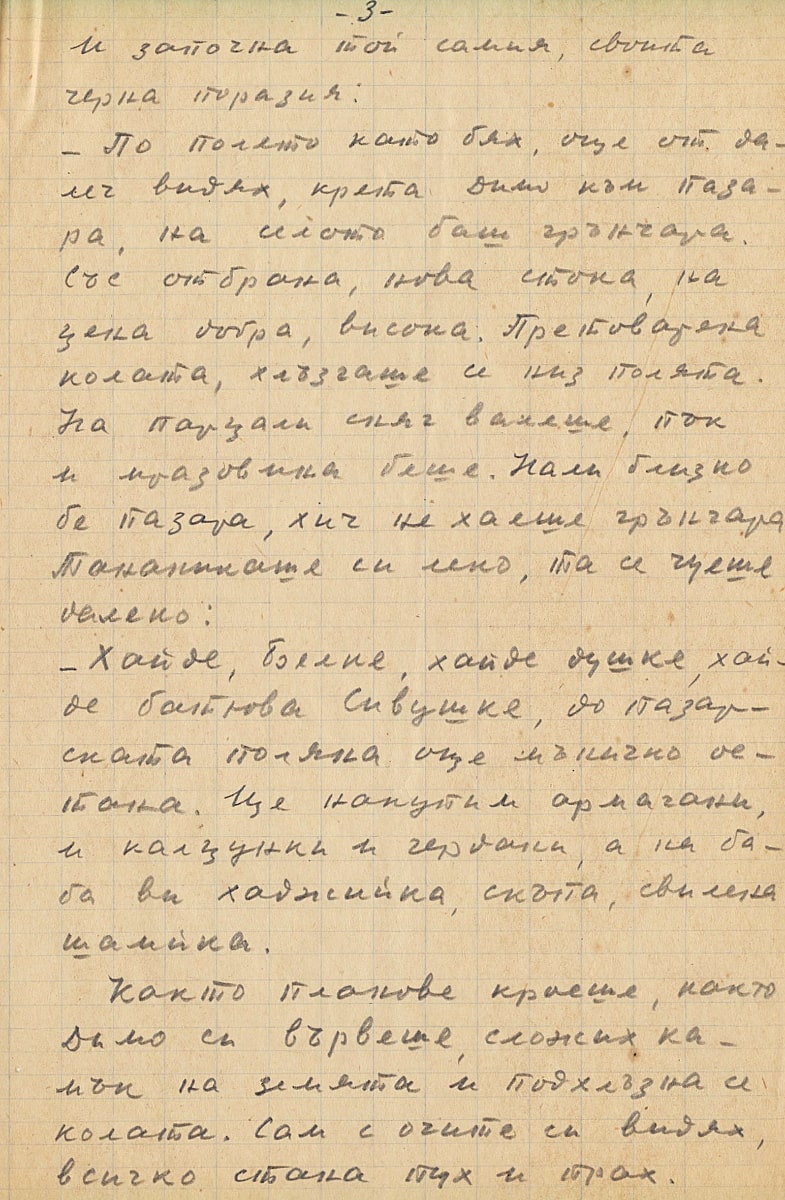 -3-
и започна той самия, своята
черна поразия:
– По полето като бях, още от да-
леч видях, крета Димо към паза-
ра, на селото баш грънчара.
Със отбрана, нова стока, на
цена добра, висока. Претоварена
колата, хлъзгаше се низ полята.
На парцали сняг валеше, пък
и мразовина беше. Нали близко
бе пазара, хич не хаеше грънчара
Тананикаше си леко, та се чуеше
далеко:
– Хайде, Белке, хайде душке, хай-
де батюва Сивушке, до пазар-
ската поляна още мъничко ос-
тана. Ще накупим армагани,
и калцунки и гердани, а на ба-
ба ви хаджийка, скъпа, свилена
шамийка.
Както планове кроеше, както
Димо си вървеше, сложих ка-
мък на земята и подхлъзна се
колата. Сам с очите си видях,
всичко стана пух и прах.